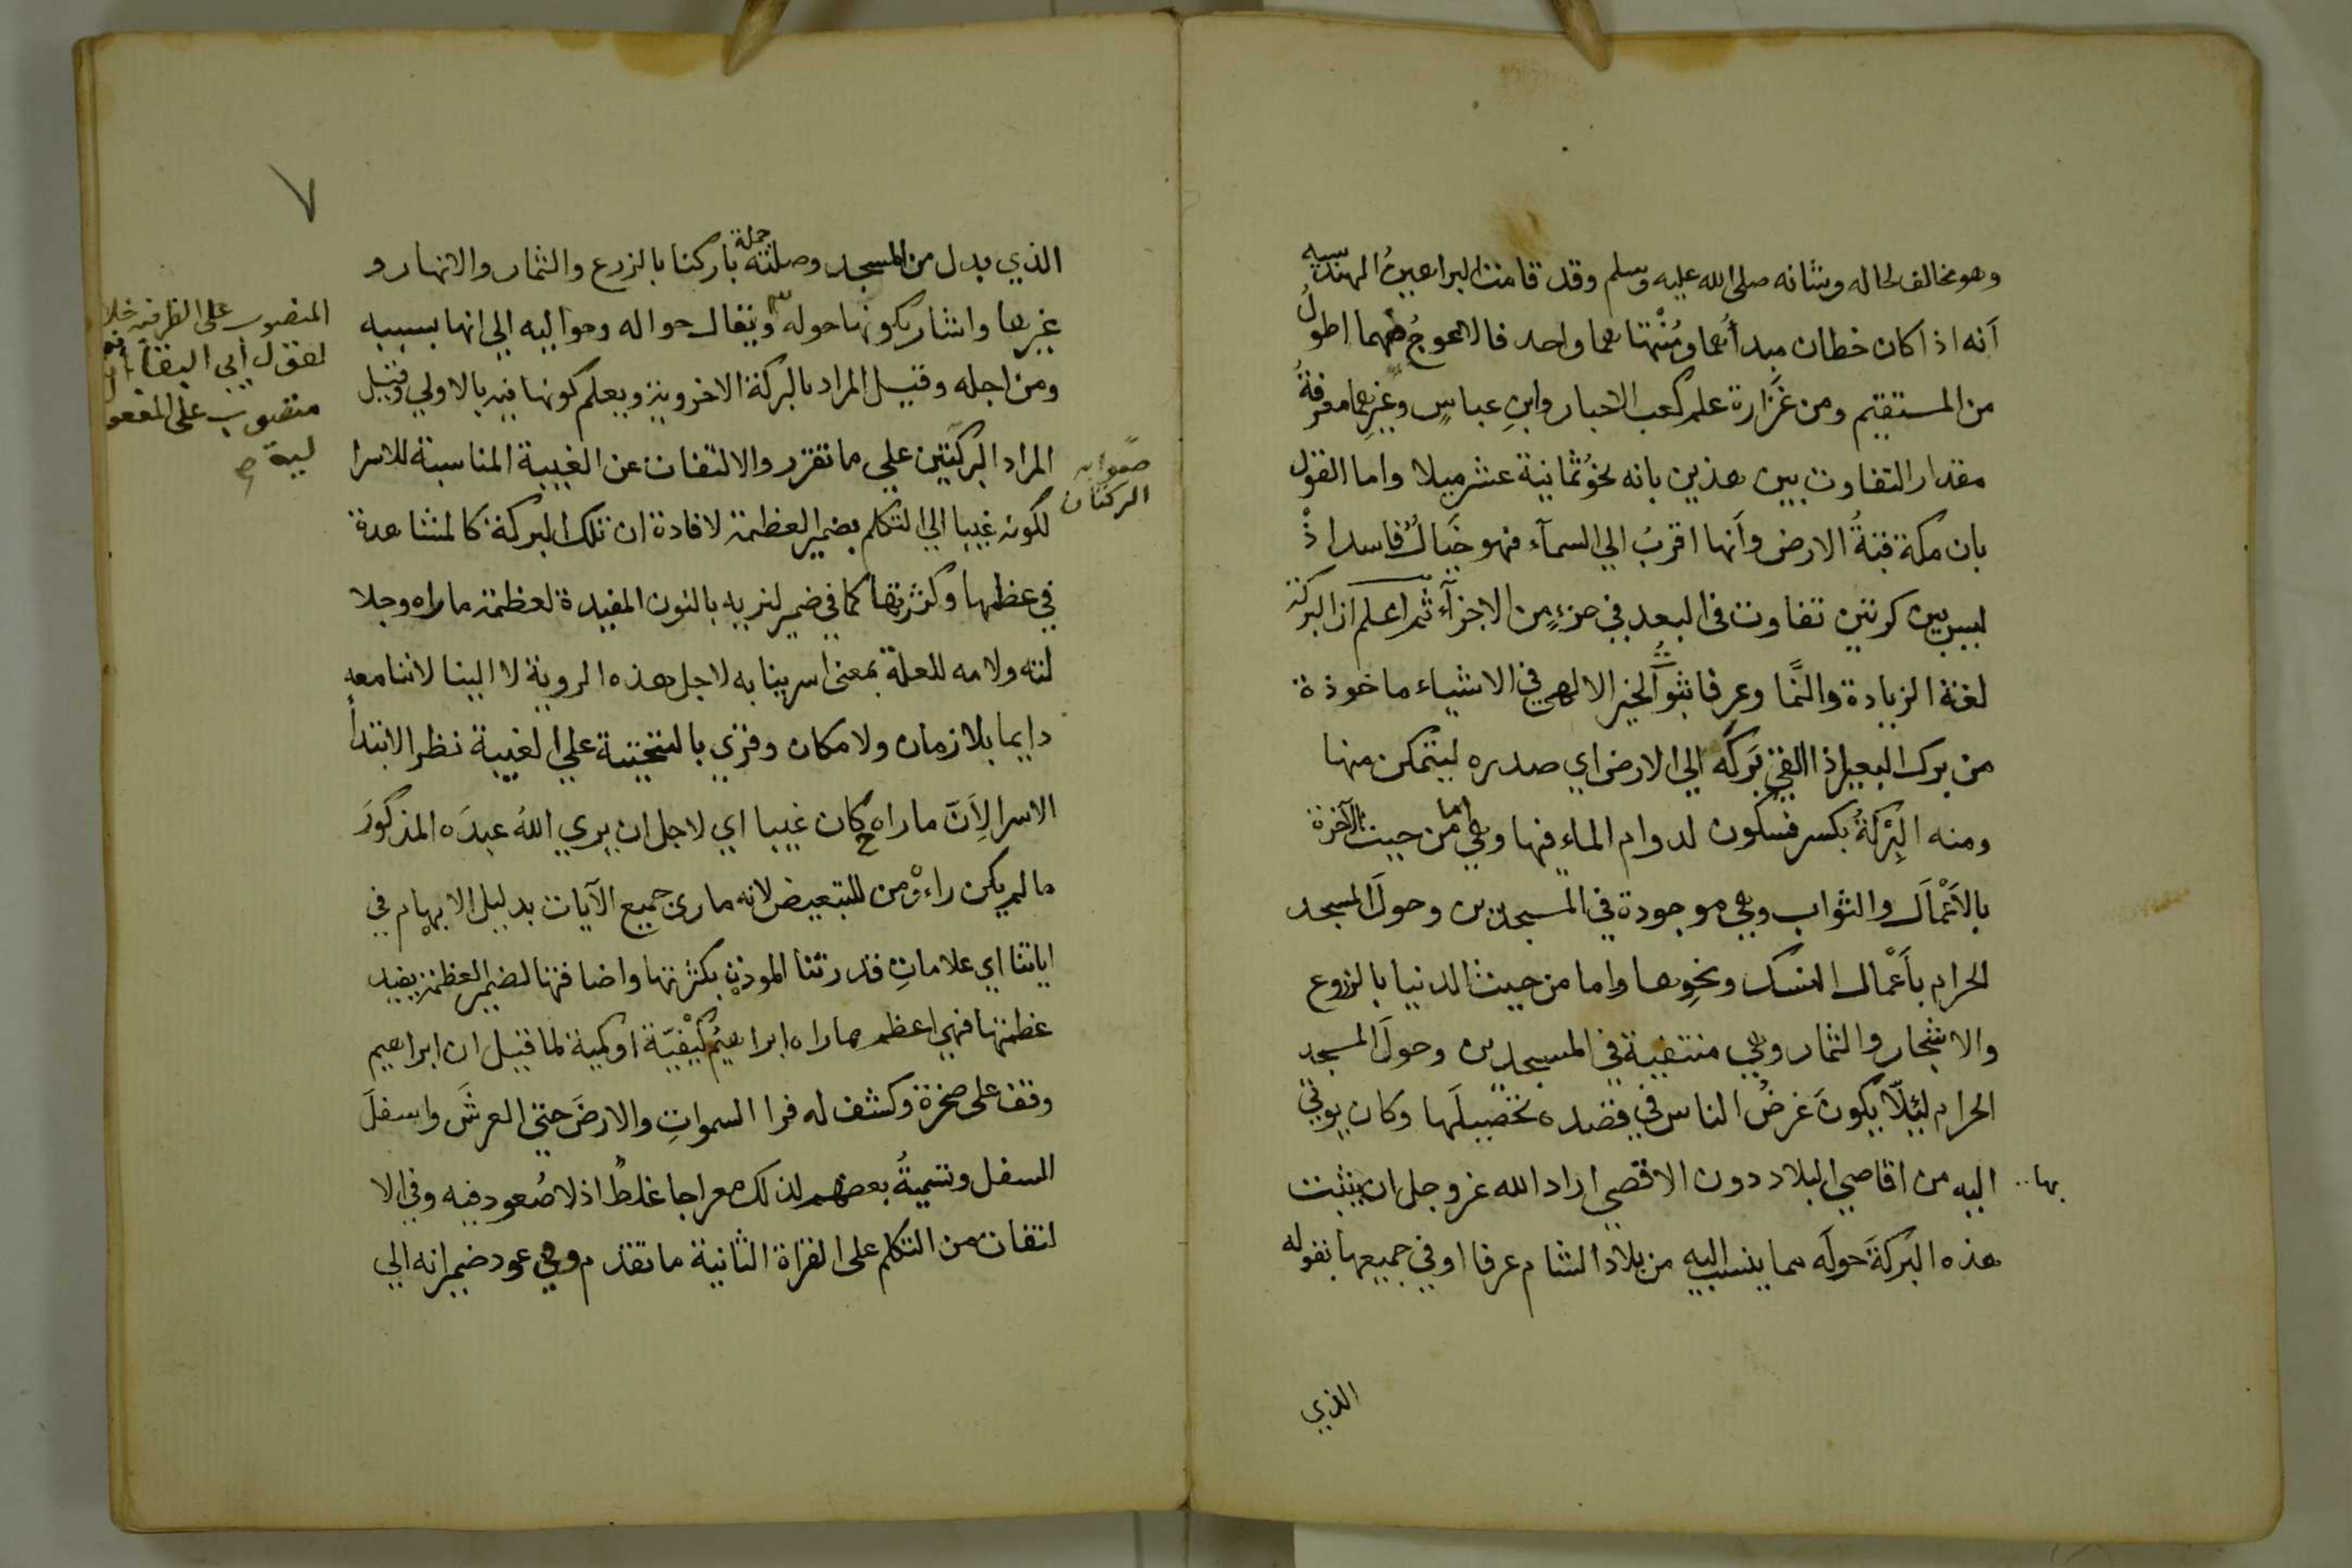 وهو مخالف لحاله وشانه صلى الله عليه وسلم وقد قامت البراهينُ الهندسيه
اَنه اذا كان خطان مبدأُهما ومُنْتهاهما واحد فالاعوجُ منهما اطولُ
من المستقيم ومن غَزارة علم كعب الاحبار وابنِ عباسٍ وغيرِهما معرفةُ
مقدار التفاوت بين هذين بانه نحوُ ثمانية عشر ميلا واما القول
بان مكة قبةُ الارض واَنها اقربُ الي السمآء فهو خَيالٌ فاسد اذْ
ليس بين كرتين تفاوت في البعد في جزءٍ من الاجزآءِ ثم اعلم ان البركة
لغة الزيادة والنَّما وعرفا ثبوتُ الخير الالهي في الاشياء ماخوذة
من برك البعير اذا القي بَركَه الي الارض اي صدره ليتمكن منها
ومنه البِرْكةُ بكسر فسكون لدوام الماء فيها وهي اما من حيث الآخرة
بالاَعْمال والثواب وهي موجودة في المسجدين وحولَ المسجد
الحرام باَعْمال النسك ونحوِها واما من حيث الدنيا بالزروع
والاشجار والثمار وهي منتفية في المسجدين وحولَ المسجد
الحرام لئِلّا يكونَ غرضُ الناس في قصده تحصيلَها وكان يوتي
بها .. اليه من اقاصي البلاد دون الاقصي اراد الله عز وجل ان يثبت
هذه البركةَ حولَه مما ينسب اليه من بلاد الشام عرفا او في جميعها بقوله
الذي
٧
الذي بدل من المسجد وصلته جملة باركنا بالزرع والثمار والانهار و
غيرها واشار بكونها حوله ويقال حواله وحواليه الي انها بسببه
ومن اجله وقيل المراد بالبركة الاخروية ويعلم كونها فيه بالاولي وقيل
المراد البركتين علي ما تقرر والالتفات عن الغيبة المناسبة للاسرا
لكونه غيبا الي التكلم بضمير العظمة لافادة ان تلك البركة كالمشاهدة
في عظمها وكثرتها كما في ضمير لنريه بالنون المفيدة لعظمة ماراه وجلا
لته ولامه للعلة بمعني اسرينا به لاجل هذه الروية لا الينا لاننا معه
دايما بلا زمان ولا مكان وقري بالتحتية علي الغيبة نظرا لابتدأ
الاسرا لِاَنّ ماراه ح كان غيبا اي لاجل ان يري اللهُ عبدَه المذكورَ
ما لم يكن راءه ومن للتبعيض لانه ماري جميع الآيات بدليل الابهام في
اياتنا اي علاماتِ قدرتنا الموذن بكثرتها واضافتها لضمير العظمة يفيد
عظمتها فهي اعظم مماراه ابراهيمُ كيْفيّة او كمية لما قيل ان ابراهيم
وقف على صخرة وكشف له فرا السمواتِ والارضَ حتي العرشَ واسفلَ
السفل وتسميةُ بعضهم لذلك معراجا غلطٌ اذ لا صُعود فيه وفي الا
لتفات من التكلم علي القراة الثانية ما تقدم وفي عود ضمير انه الي
المنصوب على الظرفيه خلافا
لقول أبي البقاء انه
منصوب على المفعو
لية
صوابه
البركتان